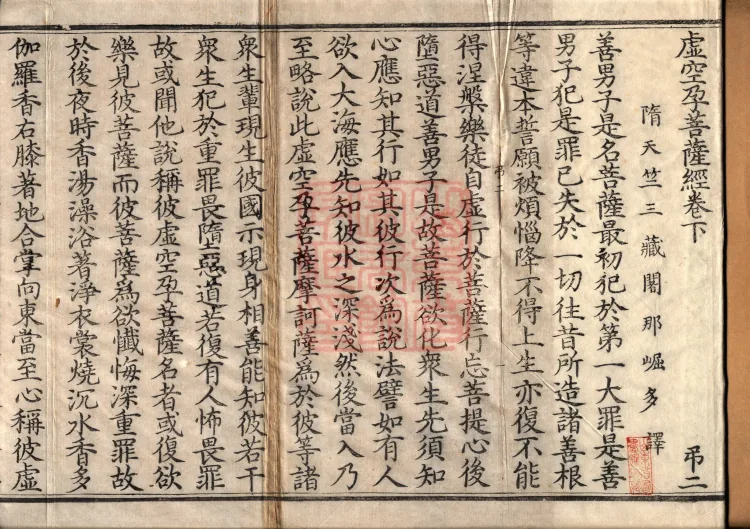 虛空孕菩薩經卷下 弔二
隋天竺三藏闍那崛多譯
善男子是名菩薩最初犯於第一大罪是善
男子犯是罪已失於一切往昔所造諸善根
等違本誓願被煩惱降不得上生亦復不能
弔二
得涅槃樂徒自虛行於菩薩行忘菩提心後
隨惡道善男子是故菩薩欲化衆生先須知
心應知其行如其彼行次爲說法譬如有人
欲入大海應先知彼水之深淺然後當入乃
至略說此虛空孕菩薩摩訶薩爲於彼等諸
衆生輩現生彼國示現身相善能知彼若干
衆生犯於重罪畏墮惡道若復有人怖畏罪
故或聞他說稱彼虛空孕菩薩名者或復欲
樂見彼菩薩而彼菩薩爲欲懺悔深重罪故
於後夜時香湯澡浴著淨衣裳燒沉水香多
伽羅香右膝著地合掌向東當至心稱彼虛